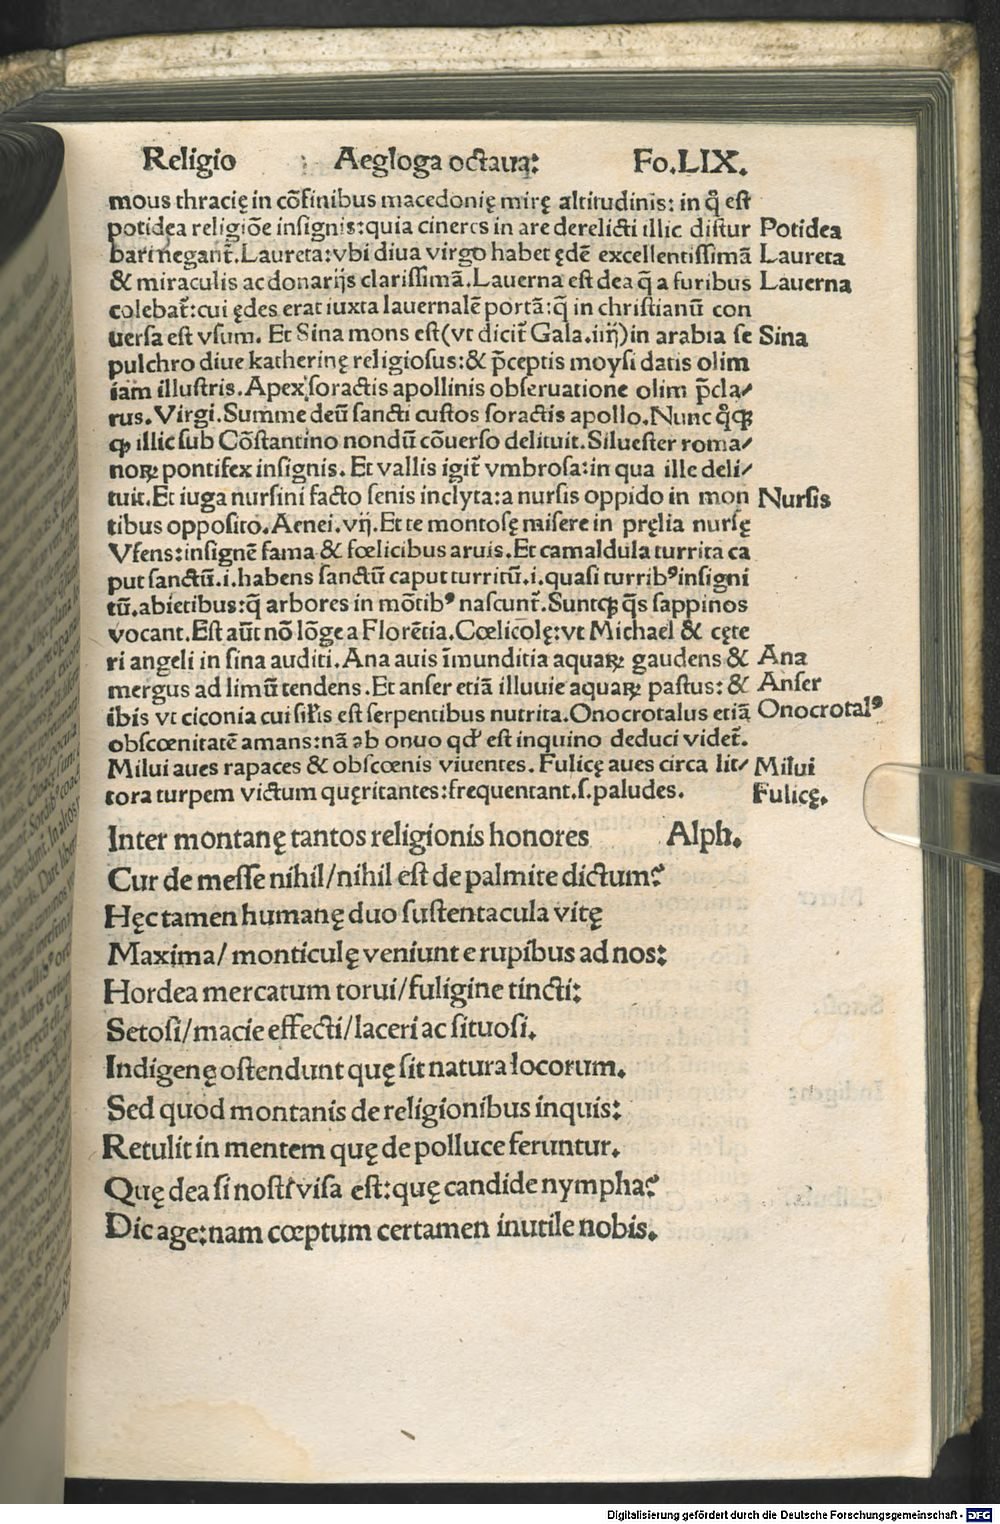 Religio Aegloga octaua: Fo.LIX.
mous thracię in cōfinibus macedonię mirę altitudinis: in q̄ est
potidea religiōe insignis:quia cineres in are derelicti illic distur Potidea
bari negant᷑.Laureta:vbi diua virgo habet ędē excellentissimā Laureta
& miraculis ac donarijs clarissimā.Lauerna est dea q̄ a furibus Lauerna
colebat᷑:cui ędes erat iuxta lauernalē portā:q̄ in christianū con
uersa est vsum. Et Sina mons est(vt dicit᷑ Gala.iiij)in arabia se Sina
pulchro diue katherinę religiosus:& p̄ceptis moysi datis olim
iam illustris.Apex soractis apollinis obseruatione olim p̄cla/
rus.Virgi.Summe deū sancti custos soractis apollo.Nunc q̊qꝫ
ꝙ illic sub Cōstantino nondū cōuerso delituit.Siluester roma/
noꝝ pontifex insignis. Et vallis igit᷑ vmbrosa:in qua ille deli/
tuit.Et iuga nursini facto senis inclyta:a nursis oppido in mon Nursis
tibus opposito.Aenei.vij.Et te montosę misere in pręlia nursę
Vfens:insignē fama & fœlicibus aruis.Et camaldula turrita ca
put sanctū.i.habens sanctū caput turritū.i.quasi turribꝰ insigni
tū.abietibus:q̄ arbores in mōtibꝰ nascunt᷑.Suntqꝫ q̄s sappinos
vocant.Est aūt nō lōge a Florētia.Cœlicolę:vt Michael & cęte
ri angeli in sina auditi.Ana auis īmunditia aquaꝝ gaudens & Ana
mergus ad limū tendens.Et anser etiā illuuie aquaꝝ pastus:& Anser
ibis vt ciconia cui sil̄is est serpentibus nutrita.Onocrotalus etiā Onocrotalꝰ
obscœnitatē amans:nā ab onuo qd̄ est inquino deduci videt᷑.
Milui aues rapaces & obscœnis viuentes. Fulicę aues circa lit/ Milui
tora turpem victum quęritantes:frequentant.s.paludes. Fulicę.
Inter montanę tantos religionis honores Alph.
Cur de messe nihil/nihil est de palmite dictum?
Hęc tamen humanę duo sustentacula vitę
Maxima/ monticulę veniunt e rupibus ad nos:
Hordea mercatum torui/fuligine tincti:
Setosi/macie effecti/laceri ac situosi.
Indigenę ostendunt quę sit natura locorum.
Sed quod montanis de religionibus inquis:
Retulit in mentem quę de polluce feruntur.
Quę dea si nosti visa est:quę candide nympha?
Dic age:nam cœptum certamen inutile nobis.
Digitalisierung gefördert durch die Deutsche Forschungsgemeinschaft - DFG